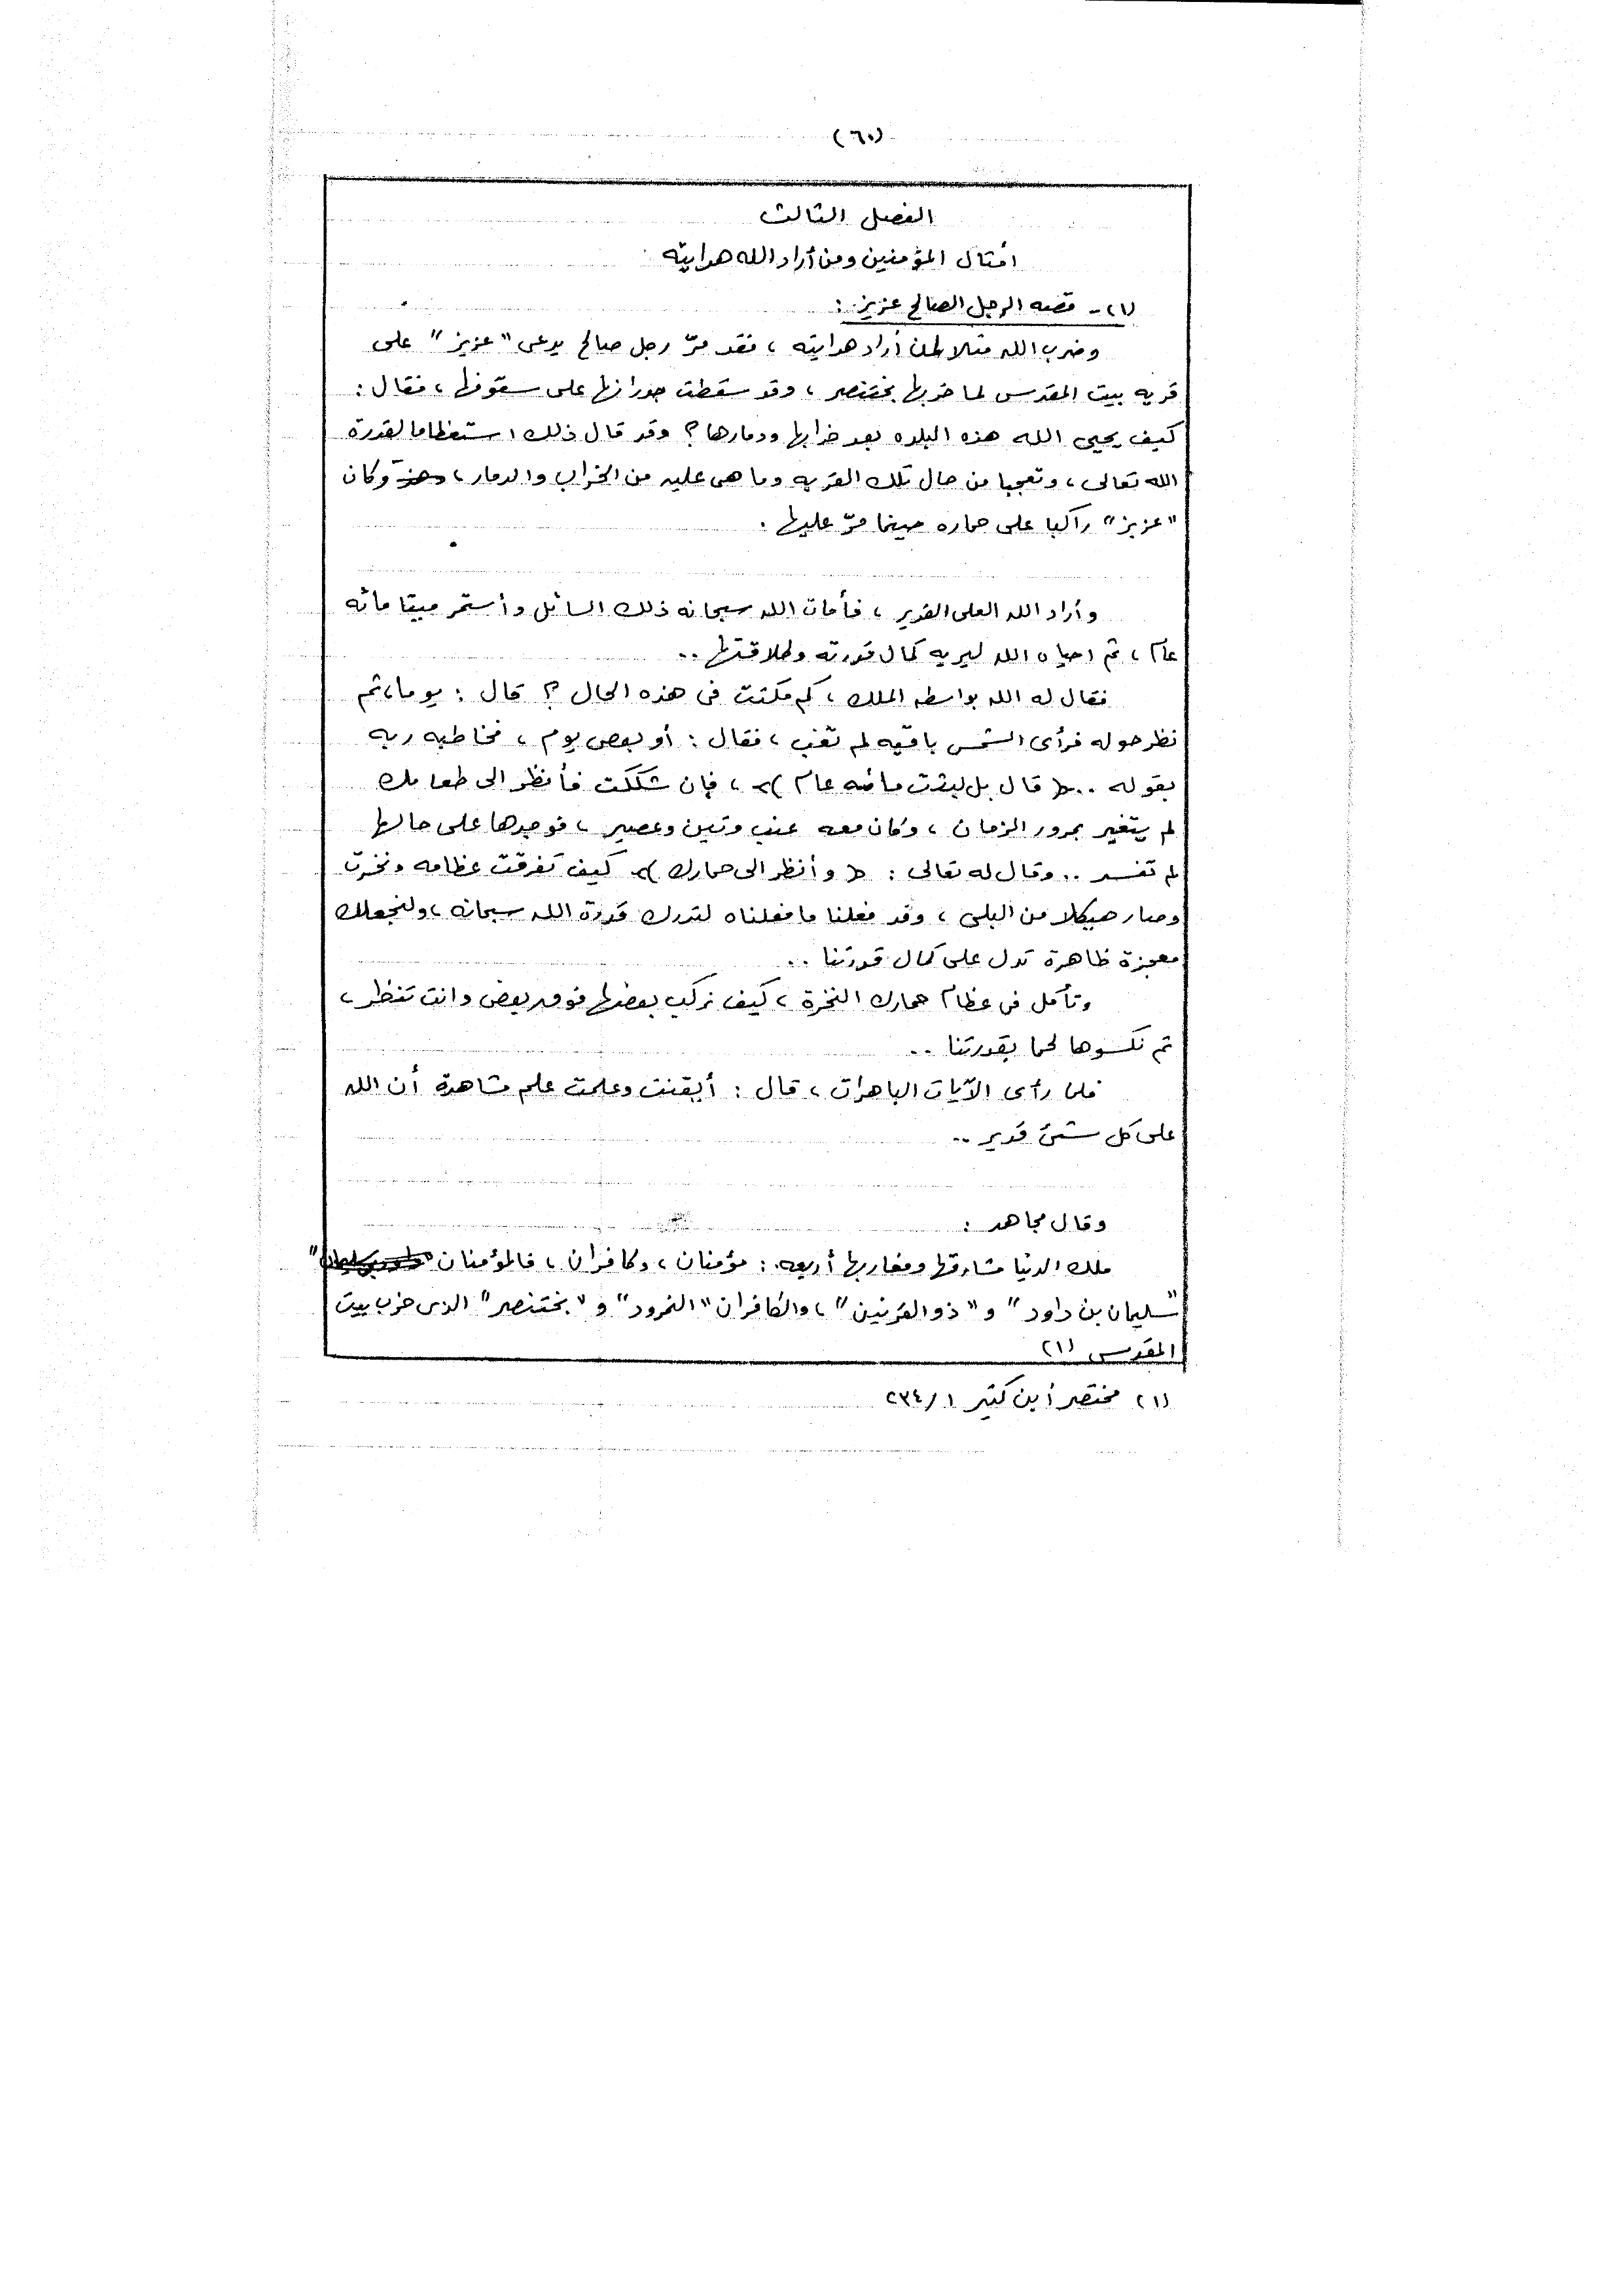 (٦٠)
الفصل الثالث
امثال المؤمنين ومن أراد الله هدايته
(١) - قصه الرجل الصالح عزيز :
وضرب الله مثلا لمن أراد هدايته ، فقد مرّ رجل صالح يدعى "عزيز" على
قريه بيت المقدس لما خربها بختنصر ، وقد سقطت جدرانها على سقوفها ، فقال :
كيف يحيى الله هذه البلده بعد خرابها ودمارها ؟ وقد قال ذلك استعظاما لقدرة
الله تعالى ، وتعجبا من حال تلك القريه وما هى عليه من الخراب والدمار ، وكان
"عزيز" راكبا على حماره حينما مرّ عليها .
وأراد الله العلى القدير ، فأمات الله سبحانه ذلك السائل وأستمر ميتا مائه
عام ، ثم احياه الله ليريه كمال قدرته وطلاقتها ..
فقال له الله بواسطه الملك ، كم مكثت فى هذه الحال ؟ قال : يوما ، ثم
نظر حوله فرأى الشمس باقيه لم تغب ، فقال : أو بعض يوم ، فخاطبه ربه
بقوله .. ﴿ قال بل لبثت مائه عام ﴾ ، فإن شككت فأنظر الى طعامك
لم يتغير بمرور الزمان ، وكان معه عنب وتين وعصير ، فوجدها على حالها
لم تفسد .. وقال له تعالى : ﴿ وأنظر الى حمارك ﴾ كيف تفرقت عظامه ونخرت
وصار هيكلا من البلى ، وقد فعلنا ما فعلناه لتدرك قدرة الله سبحانه ، ولنجعلك
معجزة ظاهرة تدل على كمال قدرتنا ..
وتأمل فى عظام حمارك النخرة ، كيف نركب بعضها فوق بعض وانت تنظر ،
ثم نكسوها لحما بقدرتنا ..
فلما رأى الآيات الباهرات ، قال : أيقنت وعلمت علم مشاهدة أن الله
على كل شئ قدير ..
وقال مجاهد :
ملك الدنيا مشارقها ومغاربها أربعه : مؤمنان ، وكافران ، فالمؤمنان
"سليمان بن داود" و "ذو القرنين" ، والكافران "النمرود" و "بختنصر" الذى خرب بيت
المقدس (١)
(١) مختصر أبن كثير ١/٢٣٤